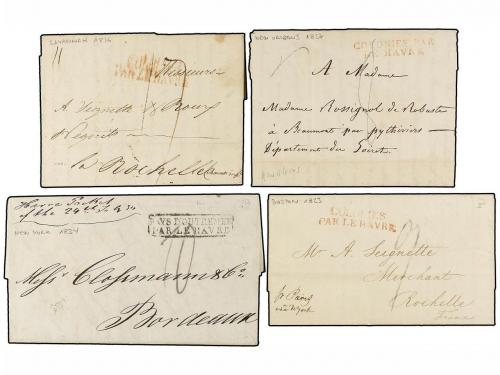 SAVANNAH 1816
COLONIES
PAR LE HAVRE
Messieurs
A. Seignette &
La Rochelle
NEW ORLEANS
COLONIES PAR
LE HAVRE
A Madame
Madame Rossignol de
à Beaumont par pythiviers
Département du Loiret
Havre Packet
of the 24th
NEW YORK 1834
PAYS D'OUTREMER
PAR LE HAVRE
Messrs Clossmann & Co.
Bordeaux
BOSTON 1823
COLONIES
PAR LE HAVRE
Mr. A. Seignette
Merchant
Rochelle
France
pr Paris
via N York